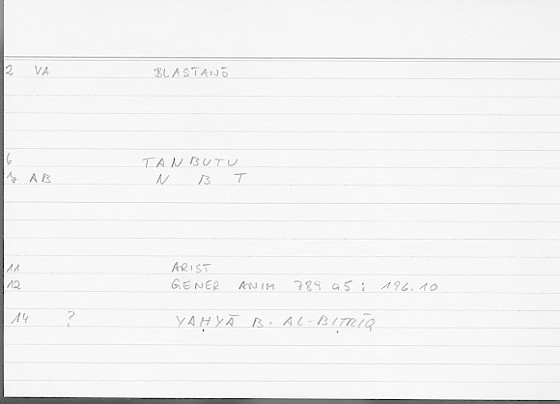 2 VA BLASTANŌ
6 TANBUTU
7 AB N B T
11 ARIST
12 GENER ANIM 789 a5 ; 196.10
14 ? YAḤYĀ B. AL-BIṬRĪQ